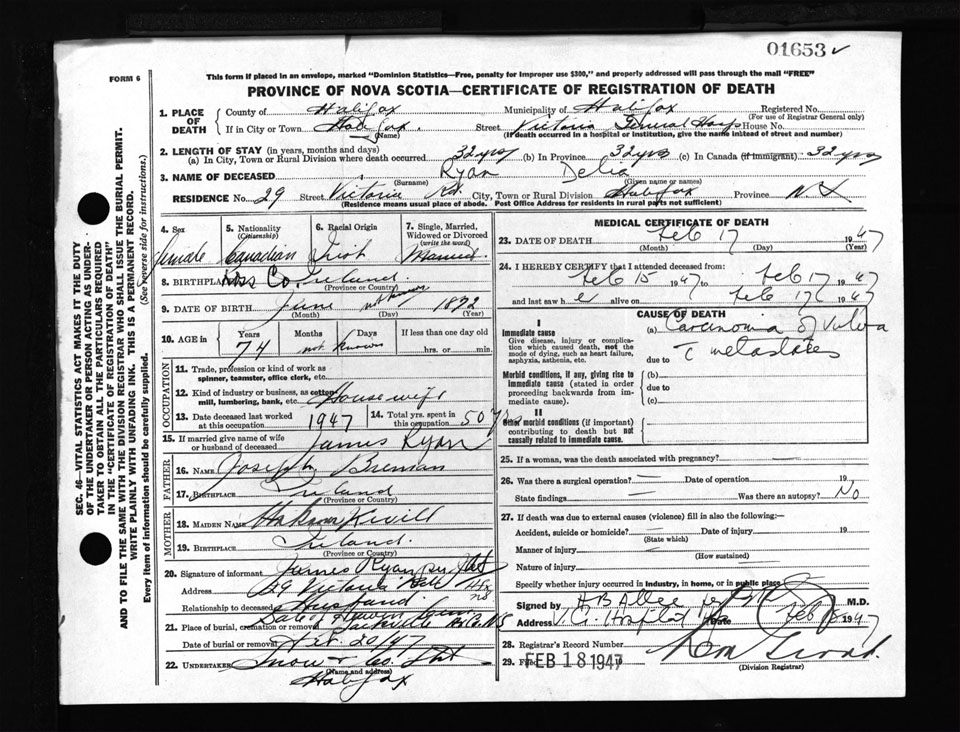 01653 ✓
FORM 6
This form if placed in an envelope, marked "Dominion Statistics—Free, penalty for improper use $300," and properly addressed will pass through the mail "FREE"
PROVINCE OF NOVA SCOTIA—CERTIFICATE OF REGISTRATION OF DEATH
1. PLACE OF DEATH
County of Halifax Municipality of Halifax Registered No.
(For use of Registrar General only)
If in City or Town Halifax. Street Victoria General Hosp House No.
(Name) (If death occurred in a hospital or institution, give the name instead of street and number)
2. LENGTH OF STAY (in years, months and days)
(a) In City, Town or Rural Division where death occurred 32 yrs (b) In Province 32 yrs (c) In Canada (if immigrant) 32 yrs
3. NAME OF DECEASED Ryan Delia
(Surname) (Given name or names)
RESIDENCE No. 29 Street Victoria Rd. City, Town or Rural Division Halifax Province N.S.
(Residence means usual place of abode. Post Office Address for residents in rural parts not sufficient)
4. Sex
female
5. Nationality (Citizenship)
Canadian
6. Racial Origin
Irish
7. Single, Married, Widowed or Divorced (write the word)
Married
8. BIRTHPLACE Co. Ireland.
(Province or Country)
9. DATE OF BIRTH June not known 1872
(Month) (Day) (Year)
10. AGE in Years Months Days If less than one day
74 not known hrs. or min.
OCCUPATION
11. Trade, profession or kind of work as spinner, teamster, office clerk, etc.
12. Kind of industry or business, as cotton mill, lumbering, bank, etc. Housewife
13. Date deceased last worked at this occupation 1947
14. Total yrs. spent in this occupation 50 yrs
15. If married give name of wife or husband of deceased James Ryan
FATHER
16. NAME Joseph Brennan
17. Birthplace Ireland
(Province or Country)
MOTHER
18. MAIDEN NAME Unknown
19. BIRTHPLACE Ireland.
(Province or Country)
20. Signature of informant James Ryan per
Address 29 Victoria Rd Hfx
Relationship to deceased Husband.
21. Place of burial, cremation or removal Sackville Hx Co NS
Date of burial or removal Feb. 20/47
22. UNDERTAKER Snow & Co.
(Name and address)
Halifax
MEDICAL CERTIFICATE OF DEATH
23. DATE OF DEATH Feb 17 1947
(Month) (Day) (Year)
24. I HEREBY CERTIFY that I attended deceased from:
Feb 15 1947 to Feb 17 1947
and last saw her alive on Feb 17 1947
CAUSE OF DEATH
I
Immediate cause
Give disease, injury or complication which caused death, not the mode of dying, such as heart failure, asphyxia, asthenia, etc.
(a) Carcinoma of Vulva
due to c metastates
Morbid conditions, if any, giving rise to immediate cause (stated in order proceeding backwards from immediate cause).
(b)
due to
(c)
II
Other morbid conditions (if important) contributing to death but not causally related to immediate cause.
25. If a woman, was the death associated with pregnancy?
26. Was there a surgical operation? — Date of operation 19
State findings — Was there an autopsy? No
27. If death was due to external causes (violence) fill in also the following:—
Accident, suicide or homicide? Date of injury 19
(State which)
Manner of injury
(How sustained)
Nature of injury
Specify whether injury occurred in industry, in home, or in public place
Signed by M.D.
Address V.G. Hospital Hfx Date Feb 18 1947
28. Registrar's Record Number
29. Filed FEB 18 1947
(Division Registrar)
SEC. 46—VITAL STATISTICS ACT MAKES IT THE DUTY
OF THE UNDERTAKER OR PERSON ACTING AS UNDER-
TAKER TO OBTAIN ALL THE PARTICULARS REQUIRED
IN THE "CERTIFICATE OF REGISTRATION OF DEATH"
AND TO FILE THE SAME WITH THE DIVISION REGISTRAR WHO SHALL ISSUE THE BURIAL PERMIT.
WRITE PLAINLY WITH UNFADING INK. THIS IS A PERMANENT RECORD.
Every item of information should be carefully supplied. (See reverse side for instructions.)